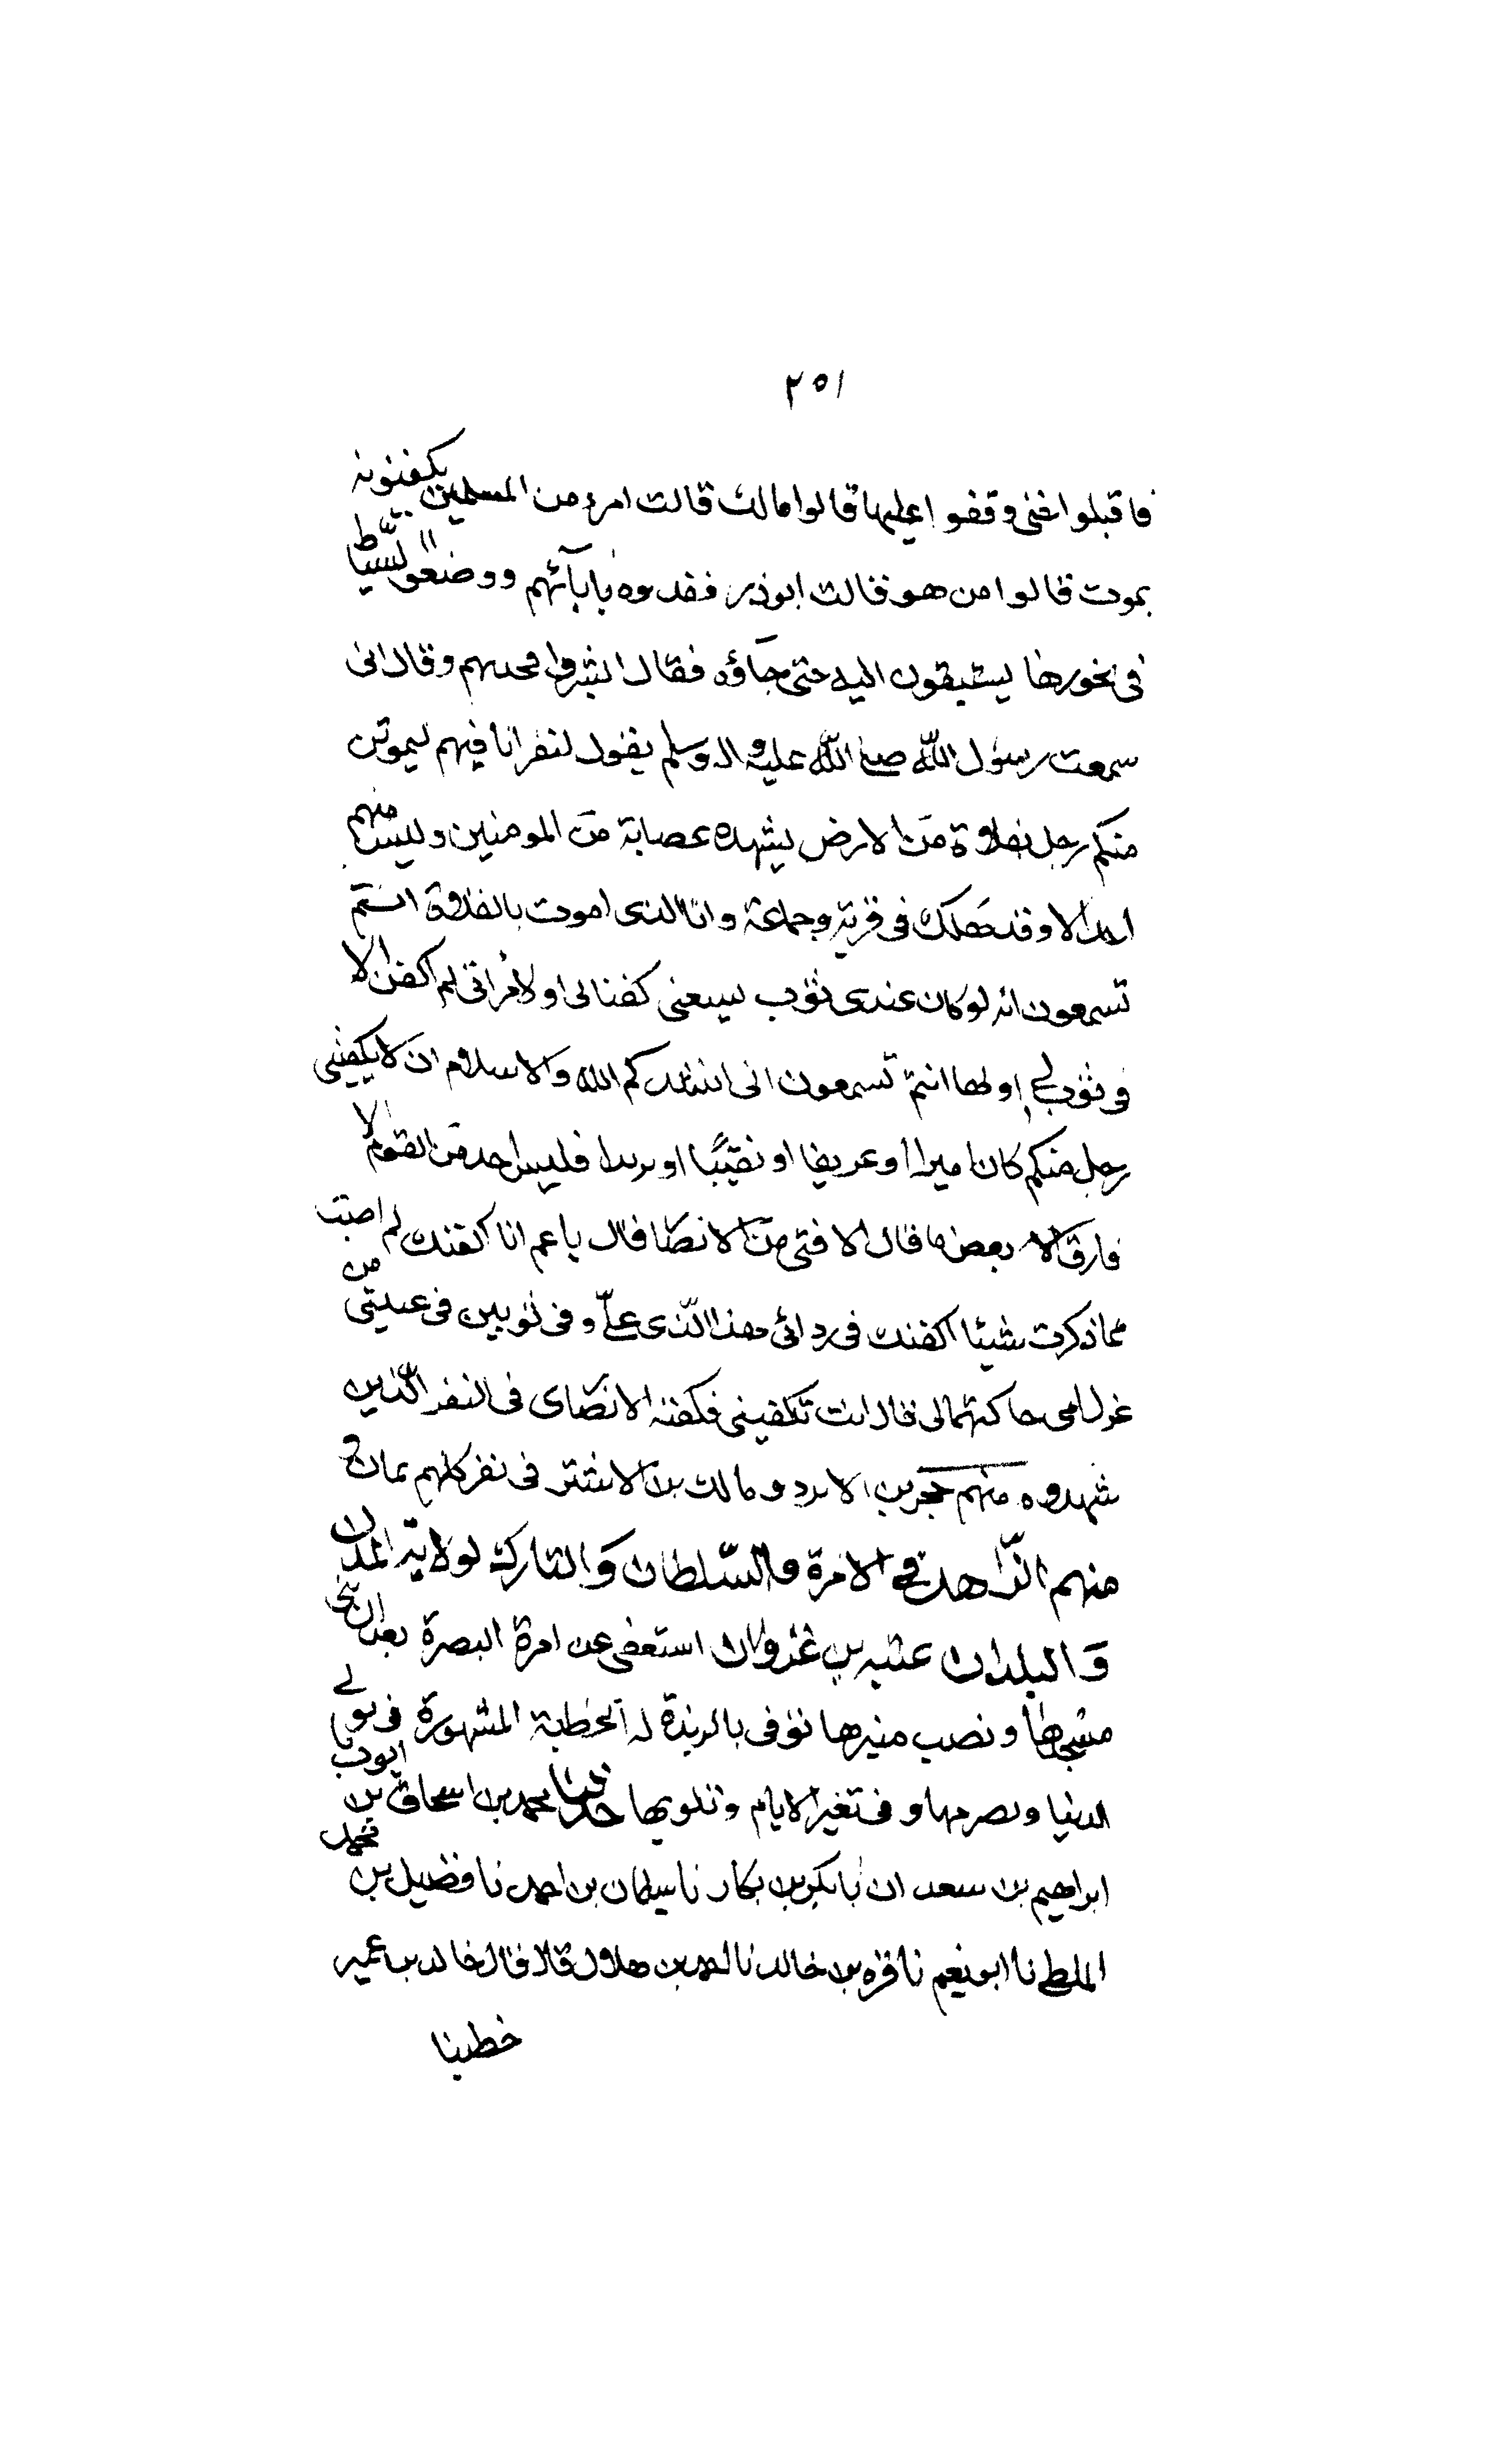 ٢٥١
فاقبلوا حتى وقفوا عليها قالوا مالك قالت امرء من المسلمين يكفنونه
يموت قالوا من هو قالت ابوذر ففدوه بابآئهم ووضعوا لسياط
فى نحورها يستبقون اليه حتى جاؤه فقال ابشروا فحدثهم وقال انى
سمعت رسول الله صلى الله عليه واله وسلم يقول لنفر انا فيهم ليموتن
منكم رجل بفلاة من الارض يشهده عصابة من المومنين وليس منهم
احد الا وقد هلك فى قرية وجماعة وانا الذى اموت بالفلاة انتم
تسمعون انه لو كان عندى ثوب يسعنى كفنا لى او لامراتى لم اكفن الا
فى ثوب لى او لها انتم تسمعون انى انشدكم الله والاسلام ان لا يكفننى
رجل منكم كان اميرا او عريفا او نقيبا او بريدا فليس احد من القوم الا
قارف الا بعض ما قال الا فتى من الانصا قال يا عم انا اكفنك لم اصبت
مما ذكرت شيئا اكفنك فى ردائى هذا الذى على وفى ثوبين فى عيبتى من
غزل امى حاكتهما لى قال انت تكفيننى فكفنه الانصاى فى النفر الذين
شهدوه منهم حجر بن الادبر ومالك بن الاشتر فى نفر كلهم يمان
منهم الزاهد فى الامرة والسلطان والتارك لولاية المدن
والبلدان عتبه بن غزوان استعفى عن امرة البصرة بعد ان بنى
مسجدها ونصب منبرها توفى بالربذة له الخطبة المشهورة فى تولى
الدنيا وتصرمها وفى تغير الايام وتلونها حدثنا محمد بن اسحاق بن ايوب
ابراهيم بن سعدان نا بكر بن بكار نا سليمان بن احمد نا فضيل بن محمد
الملطى نا ابو نعيم نا قره بن خالد نا حميد بن هلال قال قال خالد بن عمير
خطبنا